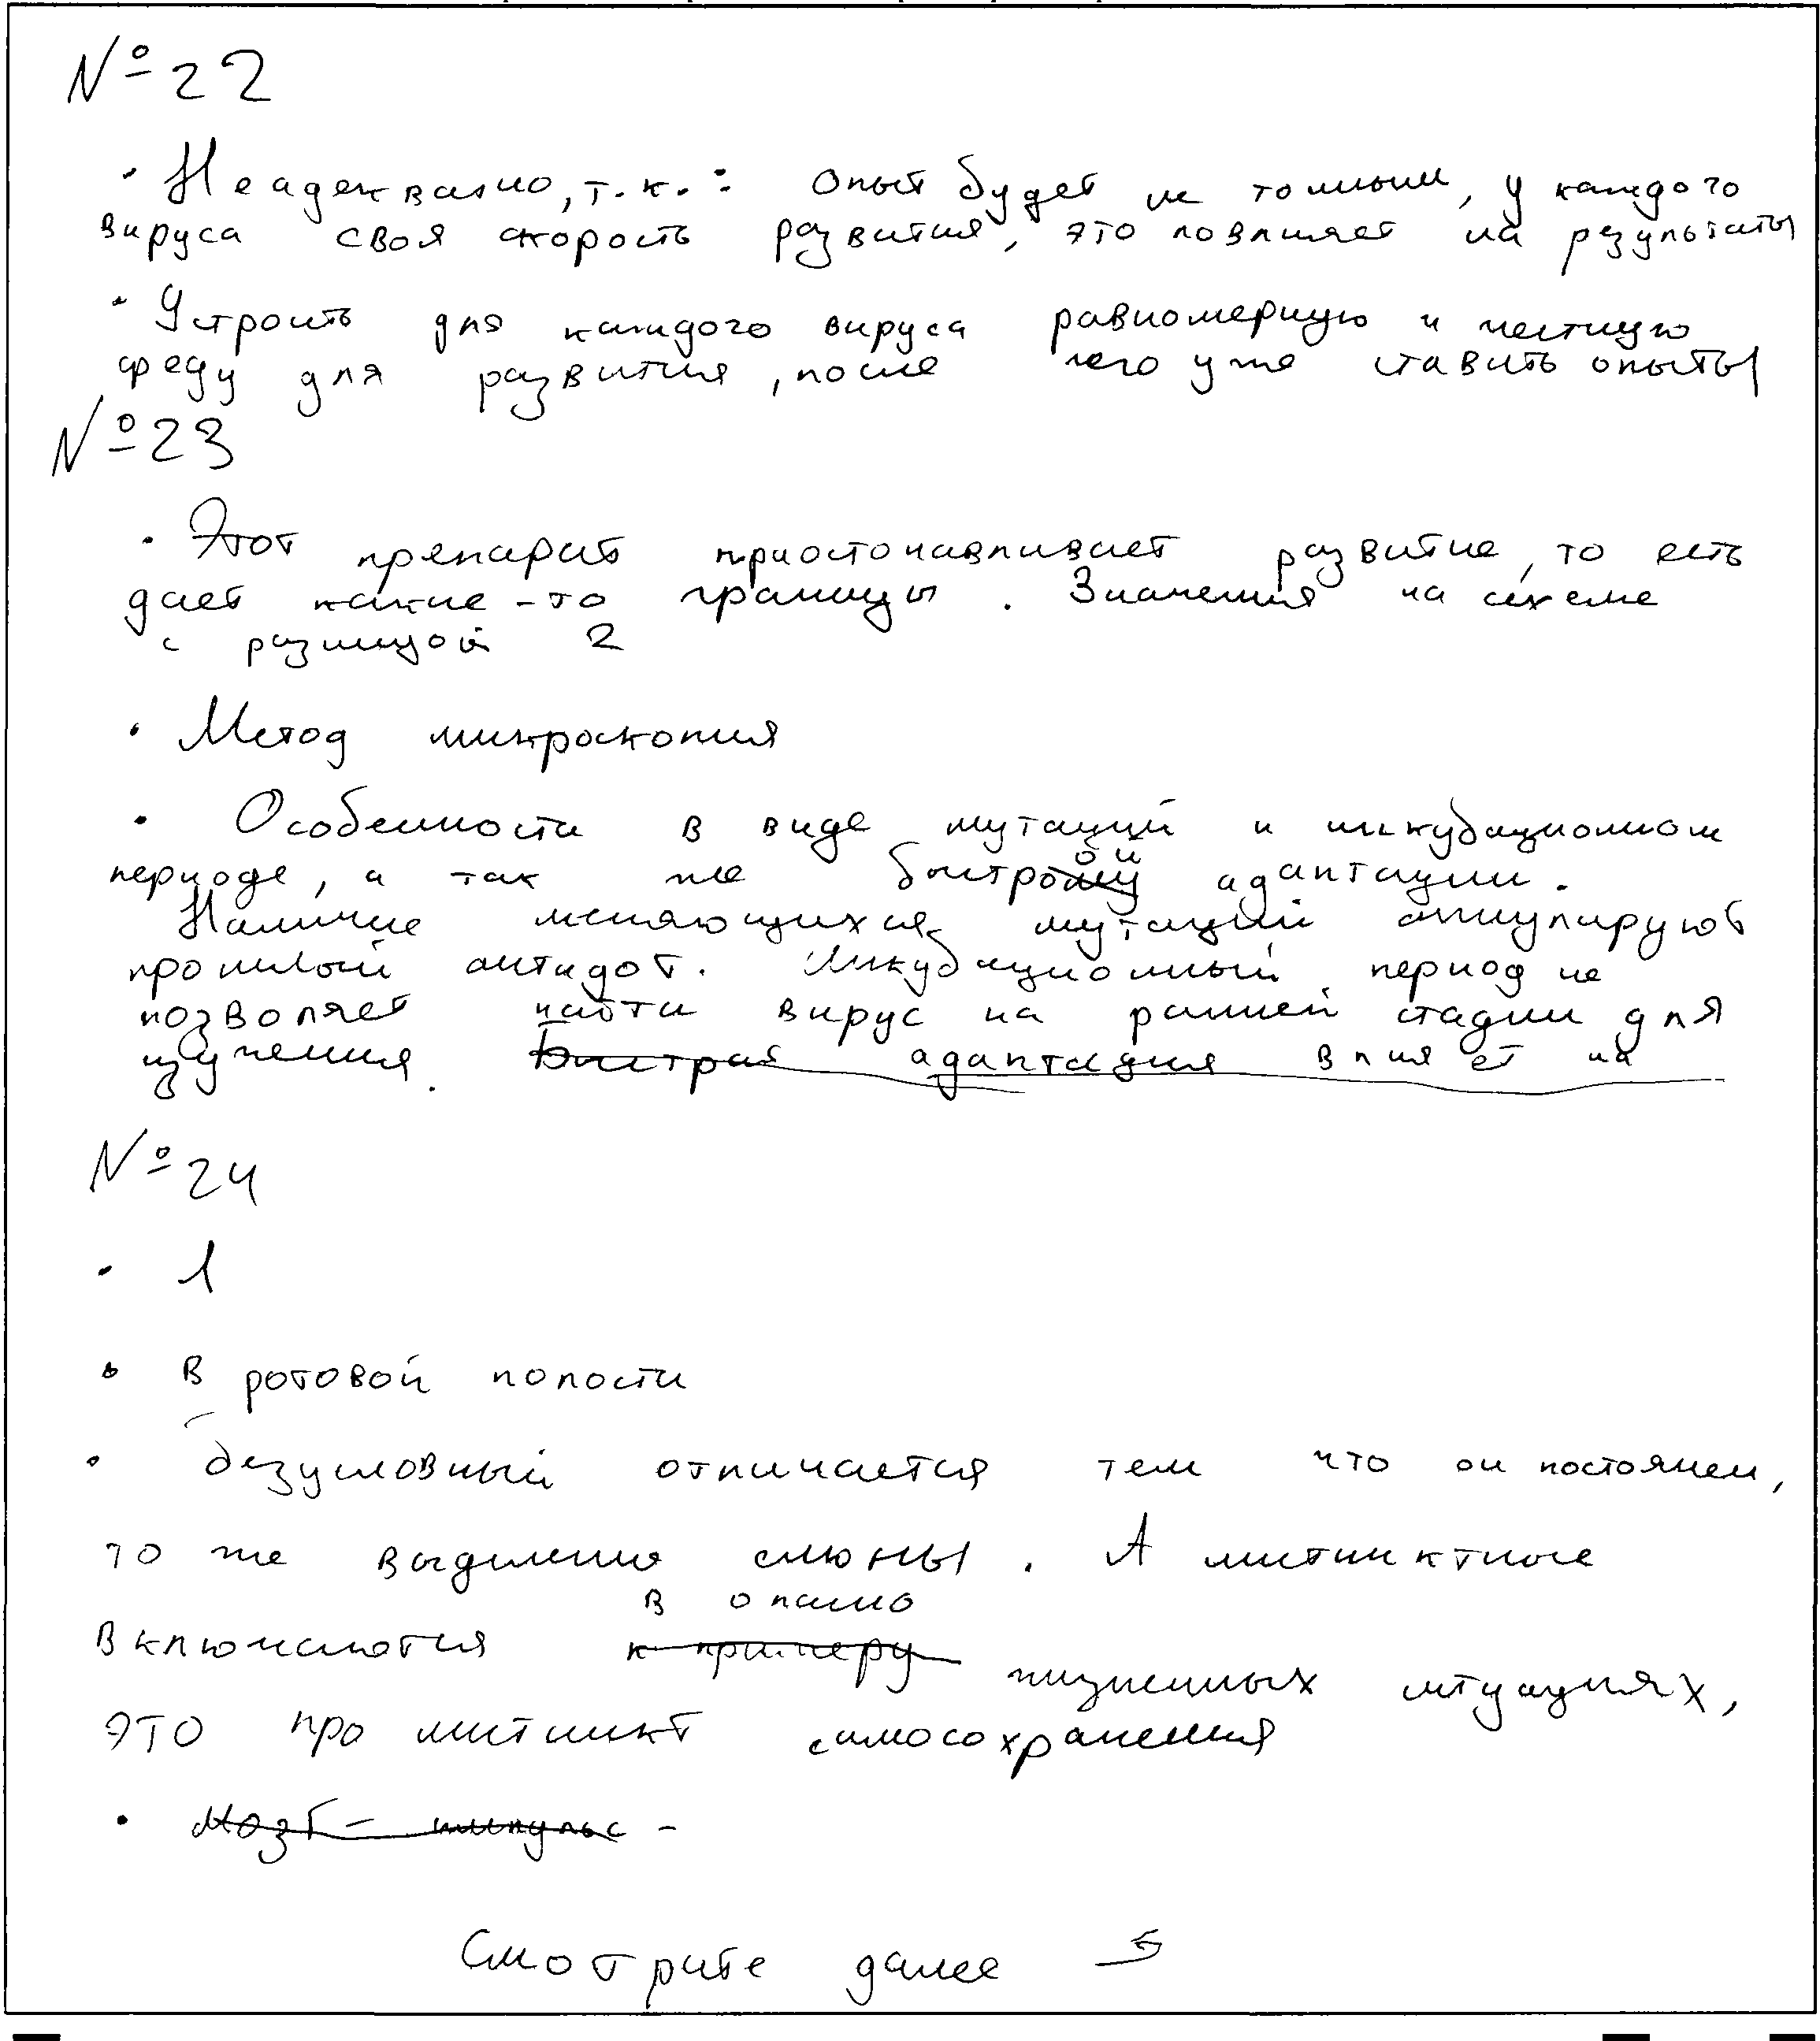 №22
· Неадекватно, т.к.: опыт будет не точным, у каждого
вируса своя скорость развития, это повлияет на результаты
· Устроить для каждого вируса равномерную и честную
среду для развития, после чего уже ставить опыты
№23
· Этот препарат приостонавливает развитие, то есть
дает какие-то границы. Значения на схеме
с разницой 2
· Метод микроскопия
· Особенности в виде мутаций и инкубационном
периоде, а так же быстрой адаптации.
Наличие меняющихся мутаций аннулируют
прошлый антидот. Инкубационный период не
позволяет найти вирус на ранней стадии для
изучения. Быстрая адаптация влияет на
№24
· 1
· В ротовой полости
· безусловный отличается тем что он постоянен,
то же выделение слюны. А инстинктные
включаются к примеру в опасно жизненных ситуациях,
это про инстинкт самосохранения
· Мозг - импульс -
Смотрите далее →